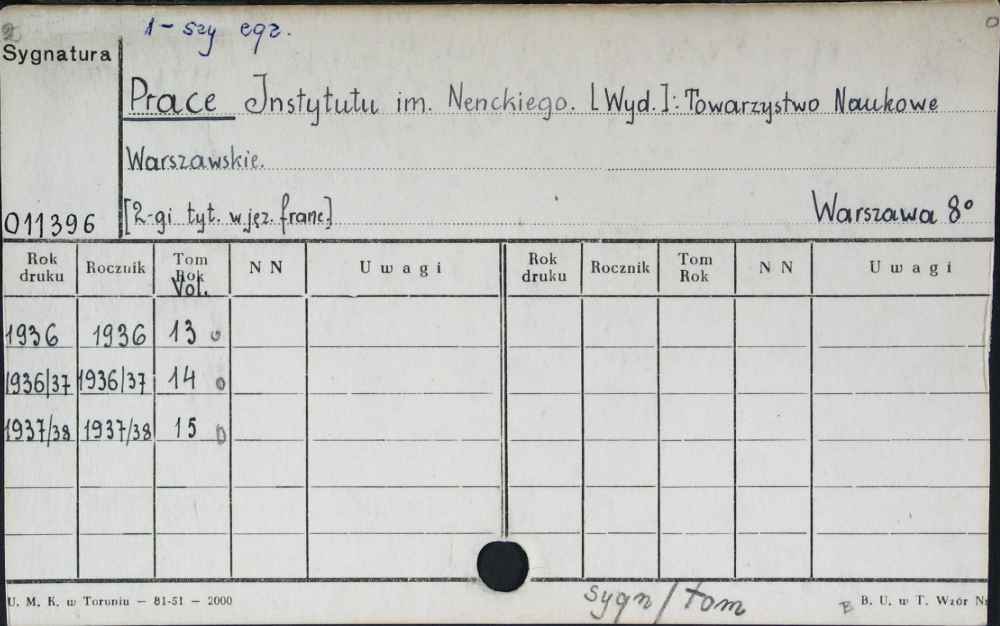 1-szy egz.
Sygnatura
Prace Instytutu im. Nenckiego. [Wyd.]: Towarzystwo Naukowe
Warszawskie.
[2-gi tyt. w jęz. franc] Warszawa 8°
011396
Rok druku Rocznik Tom Rok Vol. N N Uwagi Rok druku Rocznik Tom Rok N N Uwagi
1936 1936 13
1936/37 1936/37 14
1937/38 1937/38 15
sygn/tom
U. M. K. w Toruniu — 81-51 — 2000
B. U. w T. Wzór